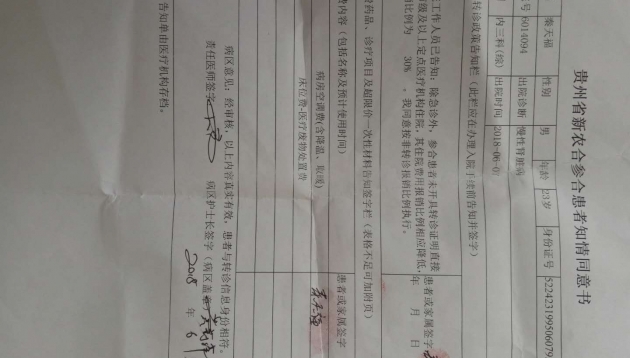 贵州省新农合参合患者知情同意书
秦天福 性别 男 年龄 23岁 身份证号 522423199506079
号 6014094 出院诊断 慢性肾脏病
内三科(综) 出院时间 2018-06-0
转诊政策告知栏(此栏应在办理入院手续前告知并签字)
工作人员已告知:除急诊外,参合患者未开具转诊证明直接
级及以上定点医疗机构住院,其住院费用报销比例相应降低,
比例为 30% ,我同意按非转诊报销比例执行。
患者或家属签字
年 月 日
药品、诊疗项目及超限价一次性材料告知签字栏(表格不足可加附页)
内容(包括名称及预计使用时间) 患者或家属签字
病房空调费(含降温、取暖)
床位费-医疗废物处置费
病区意见:经审核,以上内容真实有效,患者与转诊信息身份相符。
责任医师签字 病区护士长签字(病区盖章)
2018 年 6
告知单由医疗机构存档。